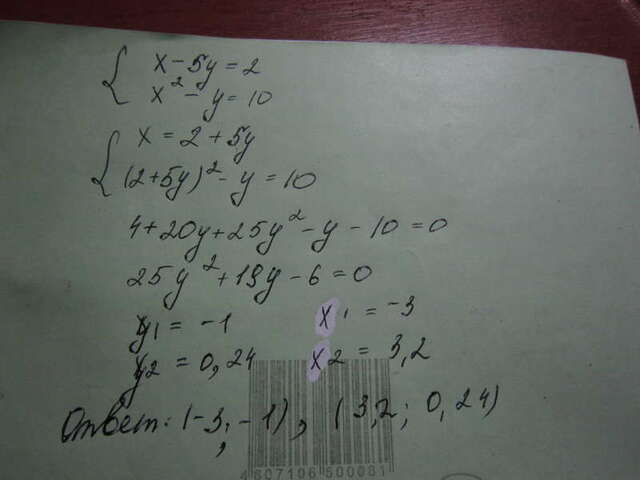 x - 5y = 2
x² - y = 10
x = 2 + 5y
(2+5y)² - y = 10
4+20y+25y²-y-10=0
25y²+19y-6=0
y1 = -1 x1 = -3
y2 = 0,24 x2 = 3,2
Ответ: (-3; -1), (3,2; 0,24)
4807106500081